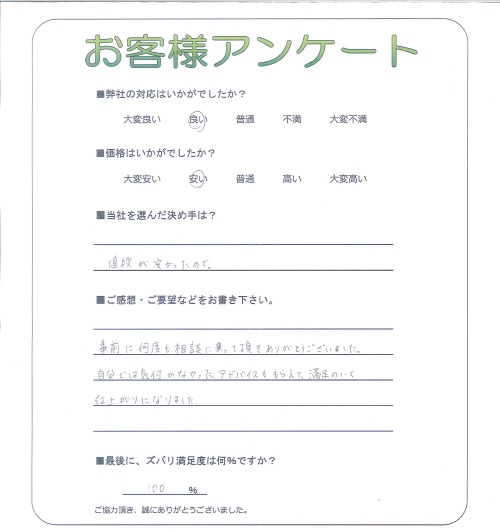 お客様アンケート
■弊社の対応はいかがでしたか？
大変良い 良い 普通 不満 大変不満
■価格はいかがでしたか？
大変安い 安い 普通 高い 大変高い
■当社を選んだ決め手は？
値段が安かったので。
■ご感想・ご要望などをお書き下さい。
事前に何度も相談に乗って頂きありがとうございました。
自分では気付かなかったアドバイスももらえて、満足のいく
仕上がりになりました。
■最後に、ズバリ満足度は何%ですか？
100 %
ご協力頂き、誠にありがとうございました。